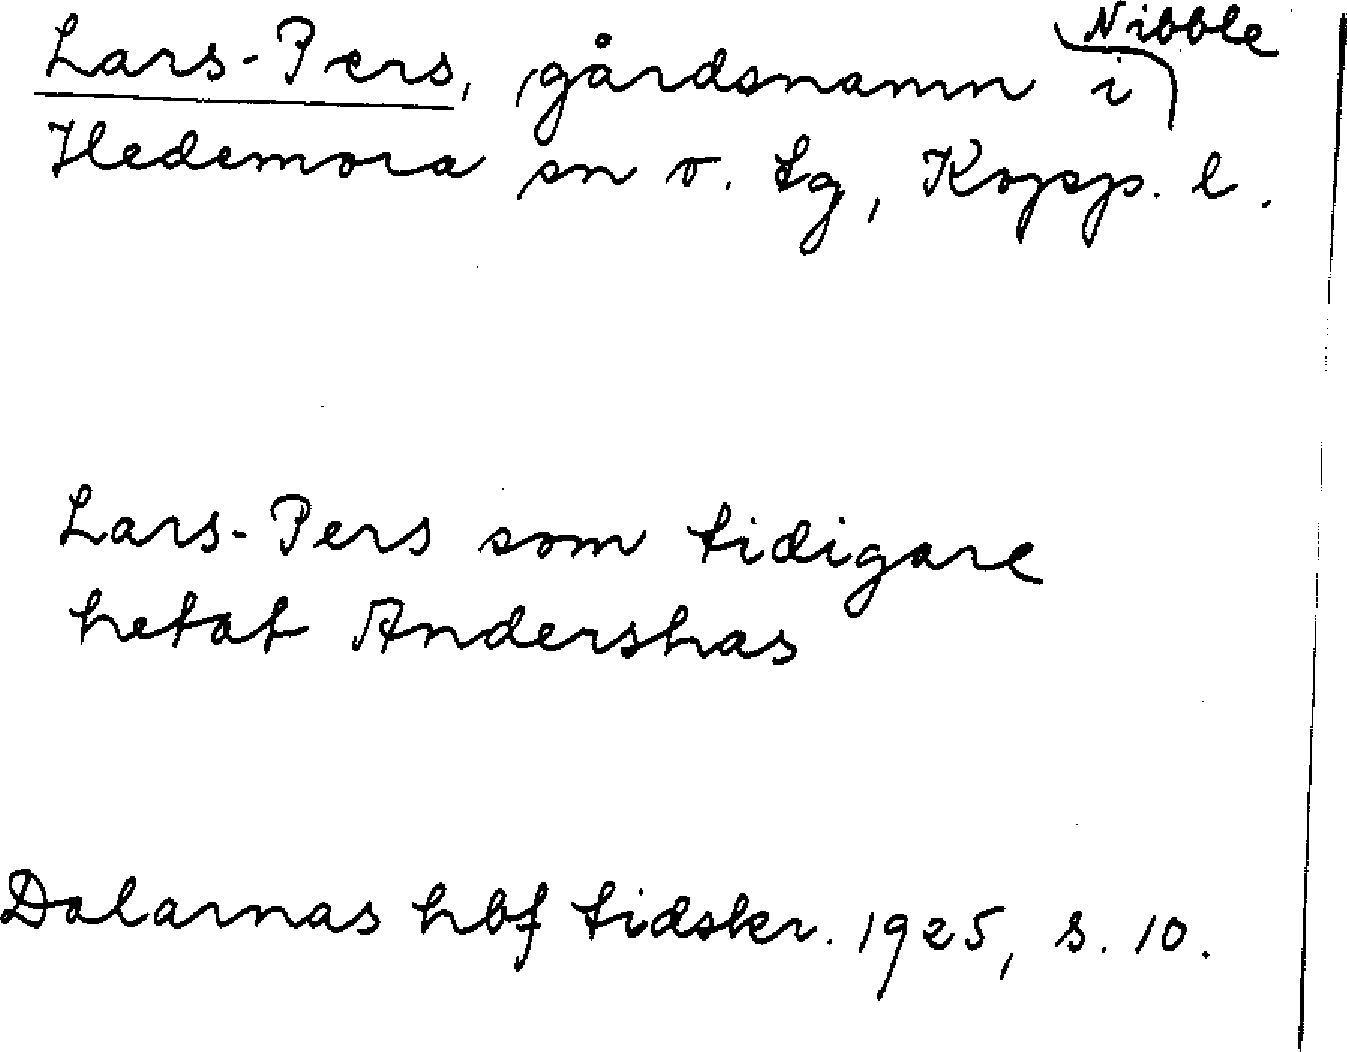 Nibble
Lars-Pers, gårdsnamn i
Hedemora sn o. tg, Kopp. l.
Lars-Pers som tidigare
hetat Andershas
Dalarnas hbf tidskr. 1925, s. 10.